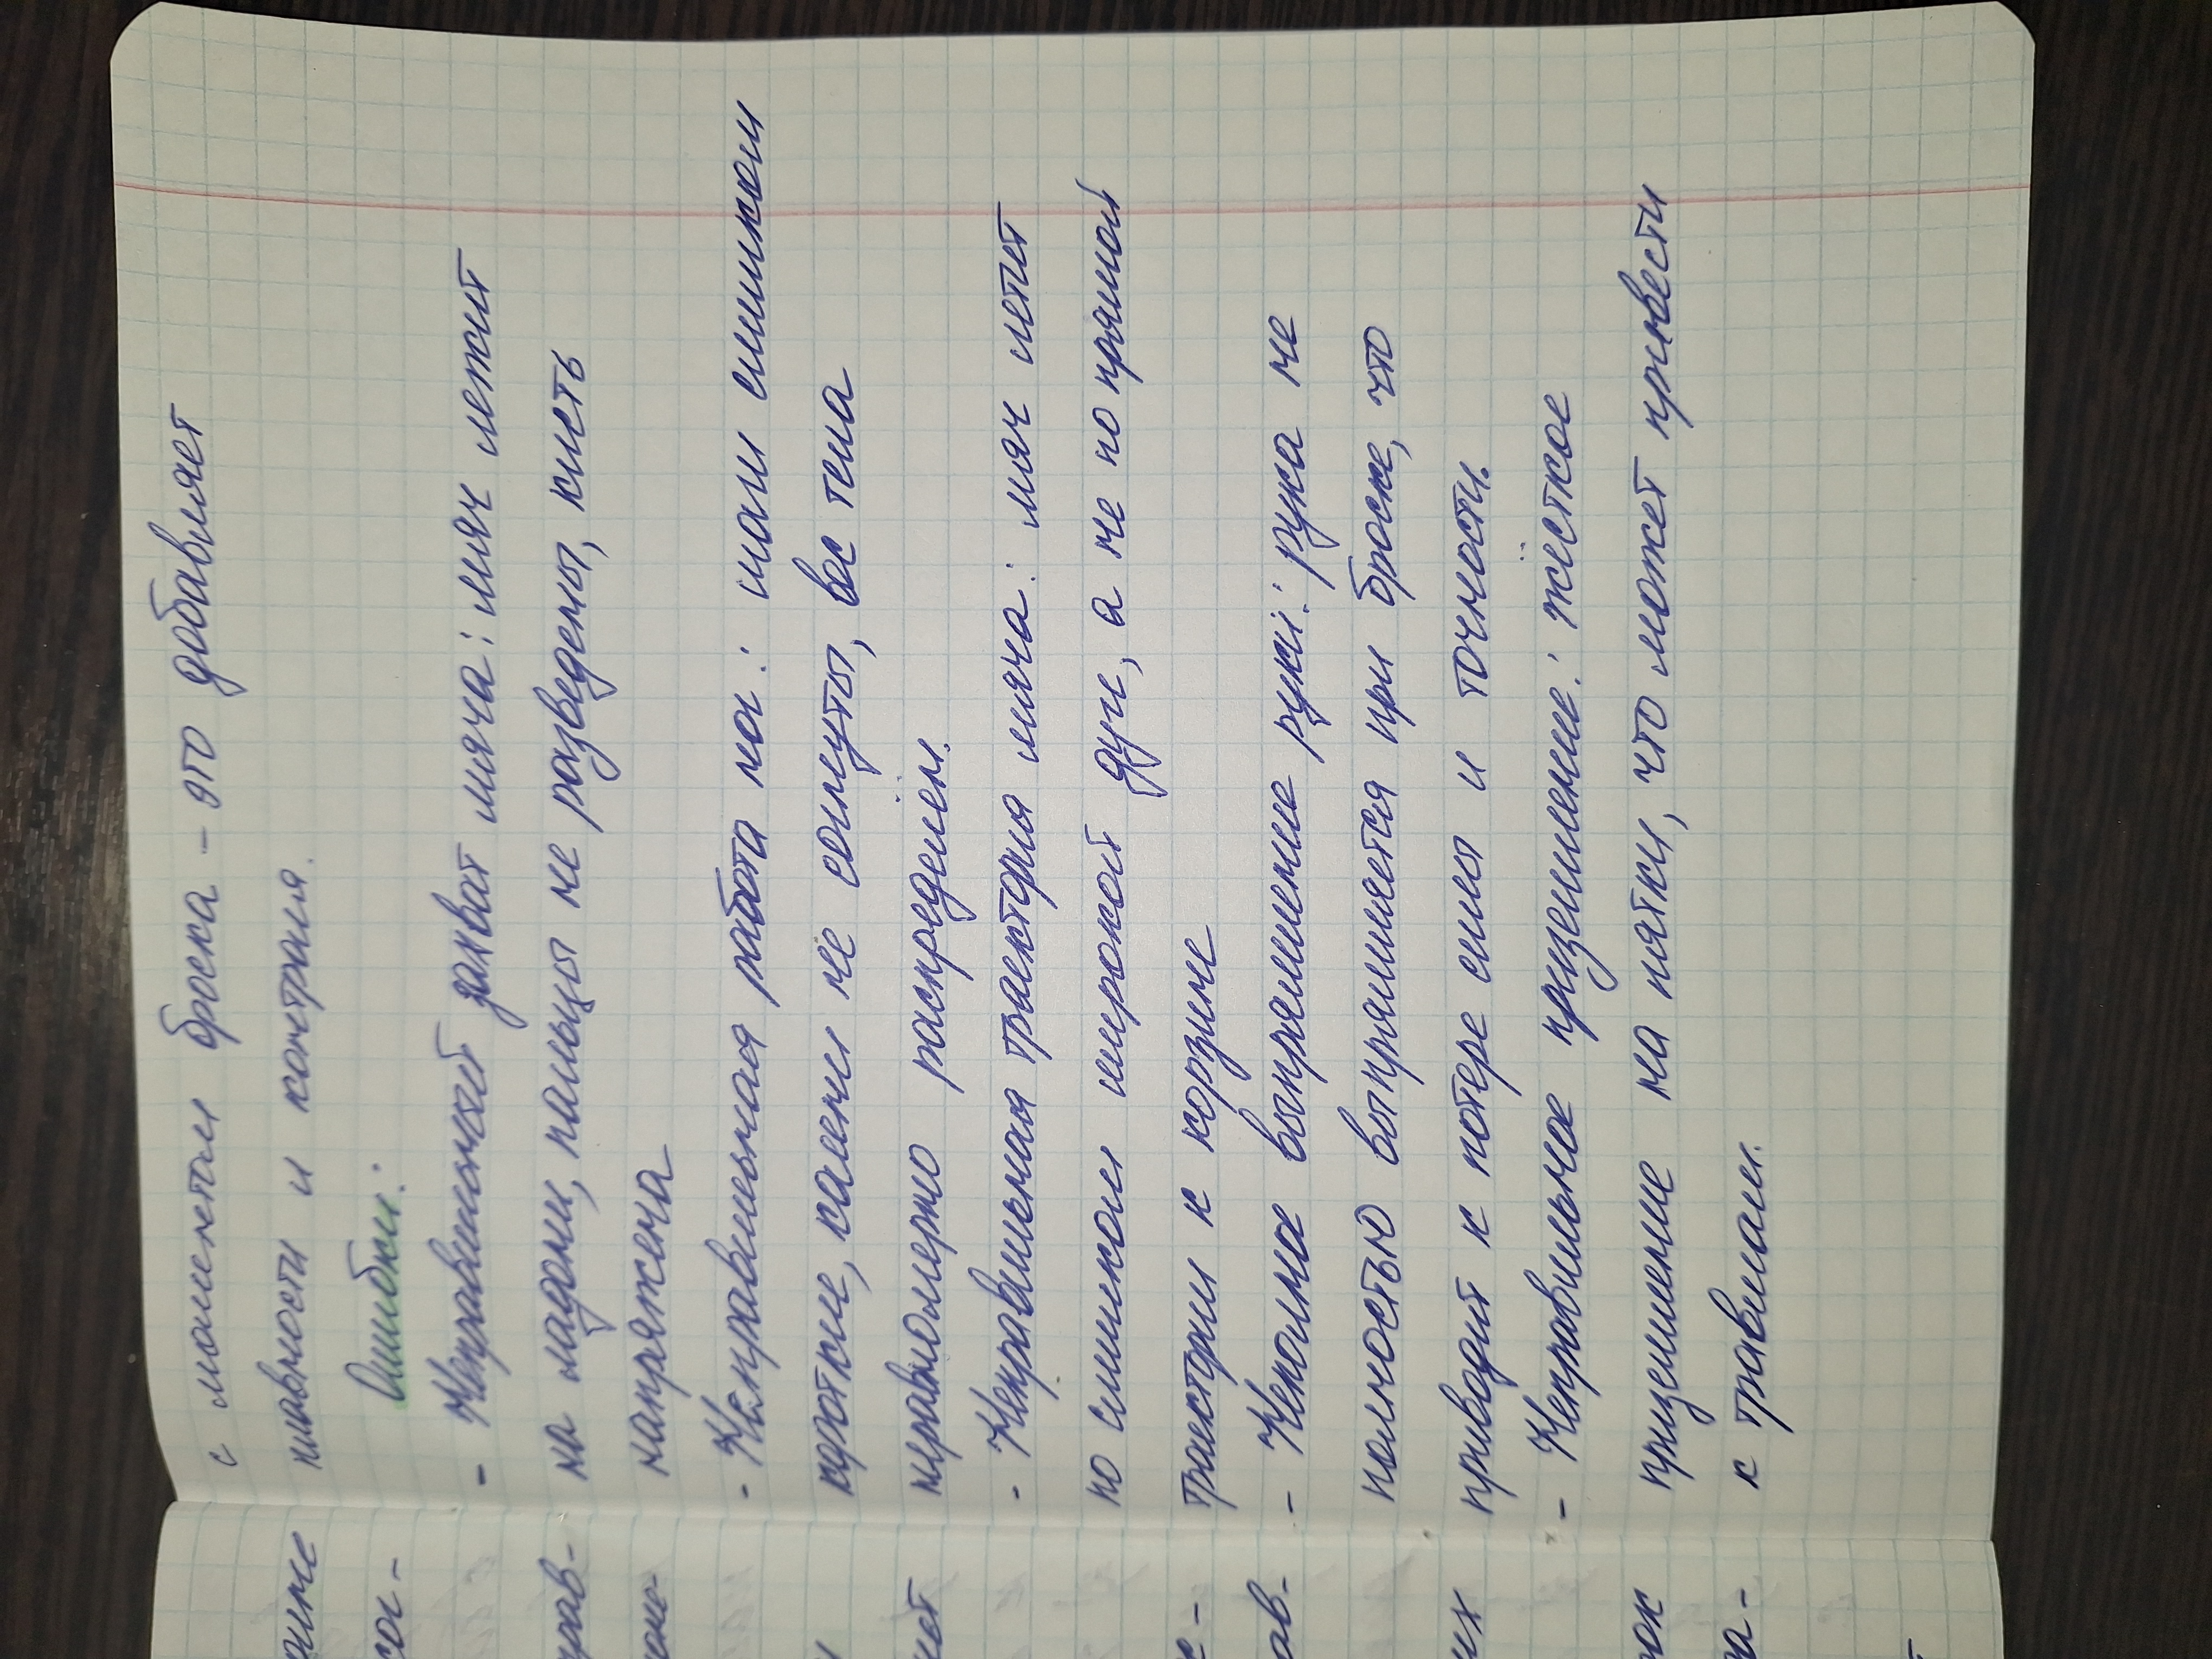 с моментом броска – это добавляет
плавности и контроля.
Ошибки:
- Неправильный захват мяча: мяч лежит
на ладони, пальцы не разведены, кисть
напряжена
- Неправильная работа ног: шаги слишком
короткие, колени не согнуты, вес тела
неравномерно распределён.
- Неправильная траектория мяча: мяч летит
по слишком широкой дуге, а не по прямой
траектории к корзине
- Неполное выпрямление руки: рука не
полностью выпрямляется при броске, что
приводит к потере силы и точности.
- Неправильное приземление: жёсткое
приземление на пятки, что может привести
к травмам.